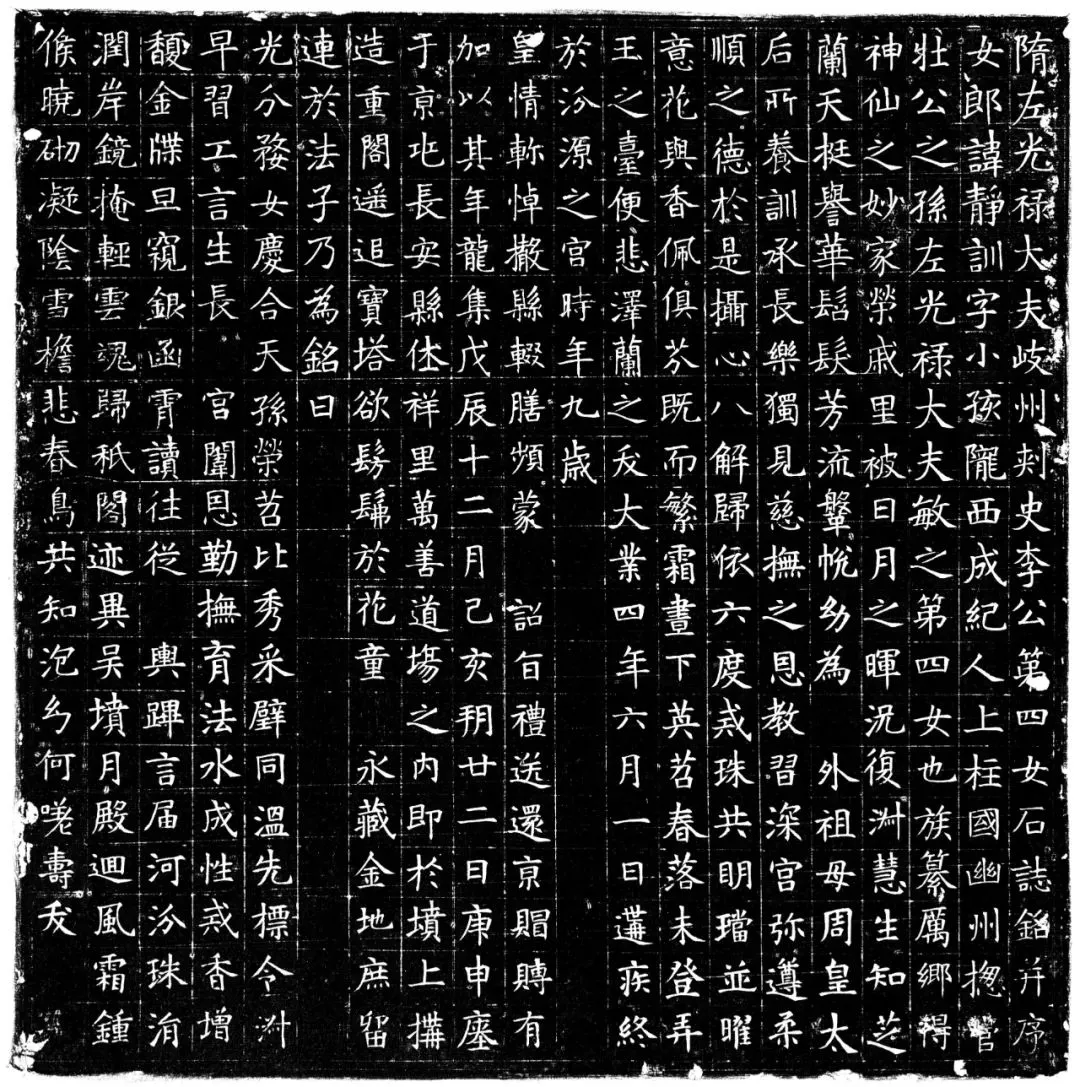 隋左光禄大夫岐州刾史李公第四女石誌銘并序
女郎諱静訓字小孩隴西成紀人上柱國幽州揔管
壮公之孫左光禄大夫敏之第四女也族纂厲鄉得
神仙之妙家榮戚里被日月之暉況復淋慧生知芝
蘭天挺譽華髫髮芳流鞶帨幼為　外祖母周皇太
后所養訓承長樂獨見慈撫之恩教習深宮弥遵柔
順之德於是攝心八解歸依六度戒珠共明璫並曜
意花與香佩俱芬既而繁霜晝下英苕春落未登弄
王之臺便悲澤蘭之夭大業四年六月一日遘疾終
於汾源之宮時年九歲
皇情軫悼撤縣輟膳頻蒙　詔旨禮送還京賵賻有
加以其年龍集戊辰十二月己亥朔廿二日庚申塟
于京兆長安縣休祥里萬善道場之内即於墳上搆
造重閣遥追寶塔欲髣髴於花童　永藏金地庶留
連於法子乃為銘曰
光分婺女慶合天孫榮苕比秀采璧同溫先標令淋
早習工言生長　宮闈恩勤撫育法水成性戒香增
馥金牒旦窺銀函霄讀往從　輿蹕言届河汾珠㳙
潤岸鏡掩輕雲魂歸秪閣迹異吴墳月殿迴風霜鍾
候曉砌凝陰雪檐悲春鳥共知泡幻何嗟壽夭